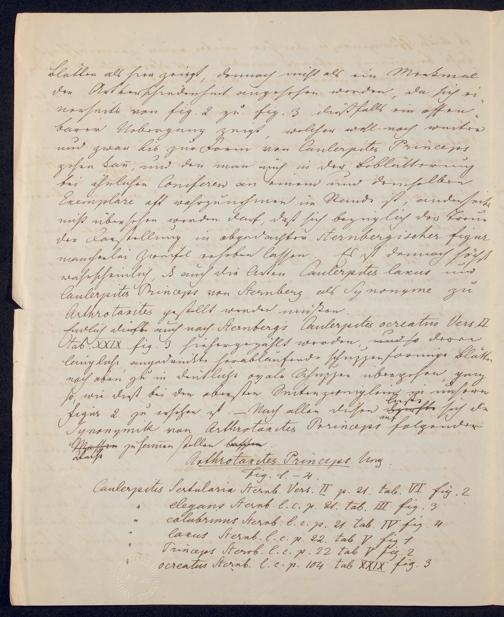 blätter als hier zeigt, dennoch nicht als ein Merkmal
der Artverschiedenheit angesehen werden, da sich ei-
nerseits von fig. 2 zu fig. 3 dießfalls ein offen-
barer Uebergang zeigt, welcher wohl noch weiter
und zwar bis zur Form von Caulerpites Princeps
gehen kann, und den man auch in der Beblätterung
bei ähnlichen Coniferen an einem und demselben
Exemplare oft wahrzunehmen im Stande ist, anderseits
nicht übersehen werden darf, daß sich bezüglich der Treue
der Darstellung in abgedachter Sternbergischer figur
mancherlei Zweifel erheben lassen. Es ist demnach höchst
wahrscheinlich, daß auch die Arten Caulerpites laxus und
Caulerpites Princeps von Sternberg als Synonyme zu
Arthrotaxites gestellt werden müssen.
Endlich dürfte auch noch Sternbergs Caulerpites ocreatus Vers. II
tab XXIX fig 3 hiehergezählt werden, und so deren
längliche herablaufende schuppenförmige Blätter
nach oben zu in deutlich ovale Schuppen übergehen ganz
so, wie dieß bei den obersten Seitenzweiglein in unserer
figur 2 zu ersehen ist. — Nach allen diesen sich die
Synonymik von Arthrotaxites Princeps folgender
zusammen stellen lassen
Arthrotaxites Princeps Ung.
Fig. 1–4.
Caulerpites Sertularia Sternb. Vers. II p. 21. tab. VI fig. 2
" elegans Sternb. l. c. p. 21. tab. III fig. 3
" colubrinus Sternb. l. c. p. 21 tab IV fig. 4
" laxus Sternb. l. c. p. 22. tab V fig 1
" Princeps Sternb. l. c. p. 22 tab V fig. 2
" ocreatus Sternb. l. c. p. 104 tab XXIX fig. 3